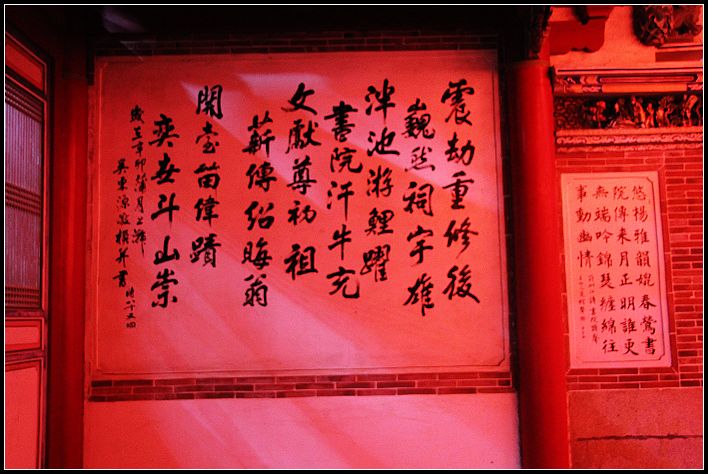 震劫重修後
巍然祠宇雄
泮池游鯉躍
書院汗牛充
文獻尊初祖
薪傳紹晦翁
開臺留偉蹟
奕世斗山崇
歲在辛卯蒲月上澣
吳東源敬撰并書 時八十五
悠揚雅韻媲春鶯書
院傳來月正明誰更
無端吟錦瑟纏綿往
事動幽情